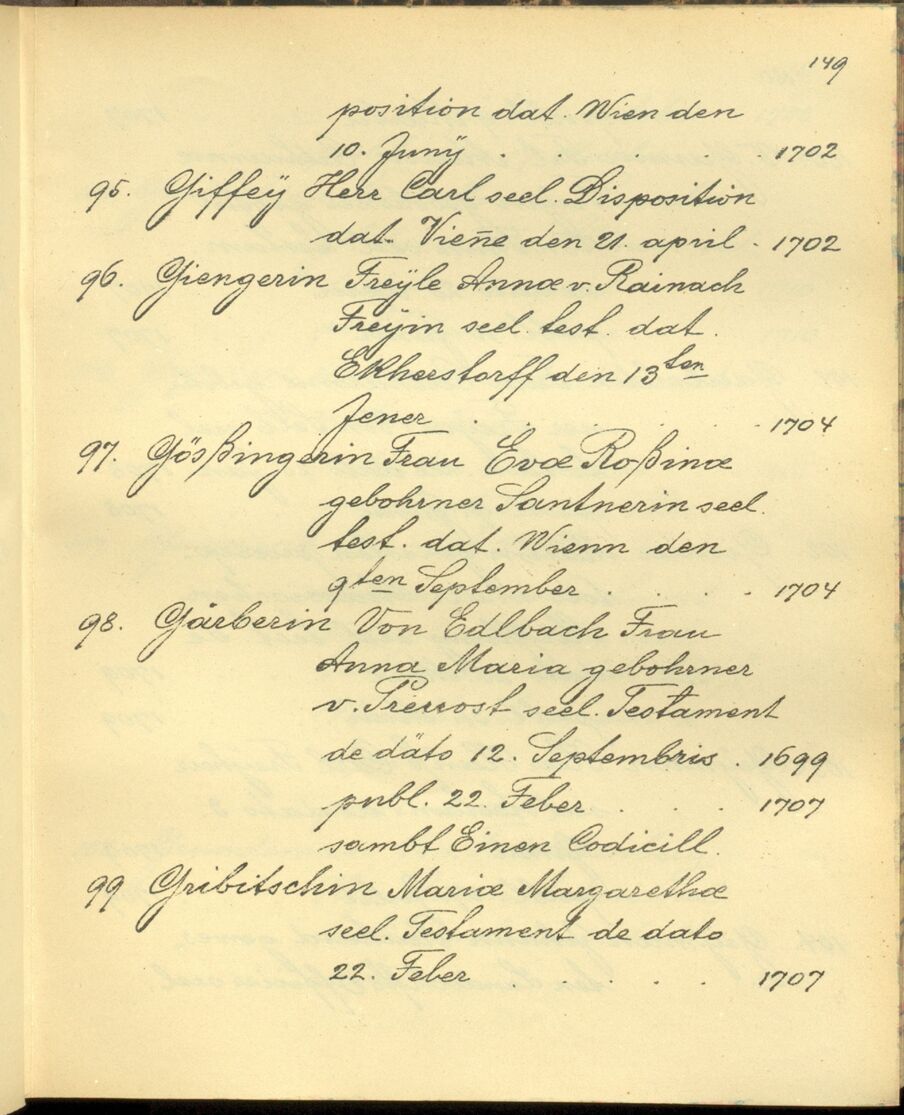 149
position dat. Wien den
10. Junÿ . . . . 1702
95. Giffeÿ Herr Carl seel. Disposition
dat. Vien̄e den 21. april . 1702
96. Giengerin Freÿle Annæ v. Rainach
Freÿin seel. test. dat.
Ekherstorff den 13ten
Jener . . . . . 1704
97. Gösßingerin Frau Evæ Roßinæ
gebohrner Santnerin seel.
test. dat. Wienn den
9ten September . . . . 1704
98. Gärberin Von Edlbach Frau
Anna Maria gebohrner
v. seel. Testament
de däto 12. Septembris . 1699
publ. 22. Feber . . . 1707
sambt Einen Codicill.
99 Gribitschin Mariæ Margarethæ
seel. Testament de dato
22. Feber . . . 1707